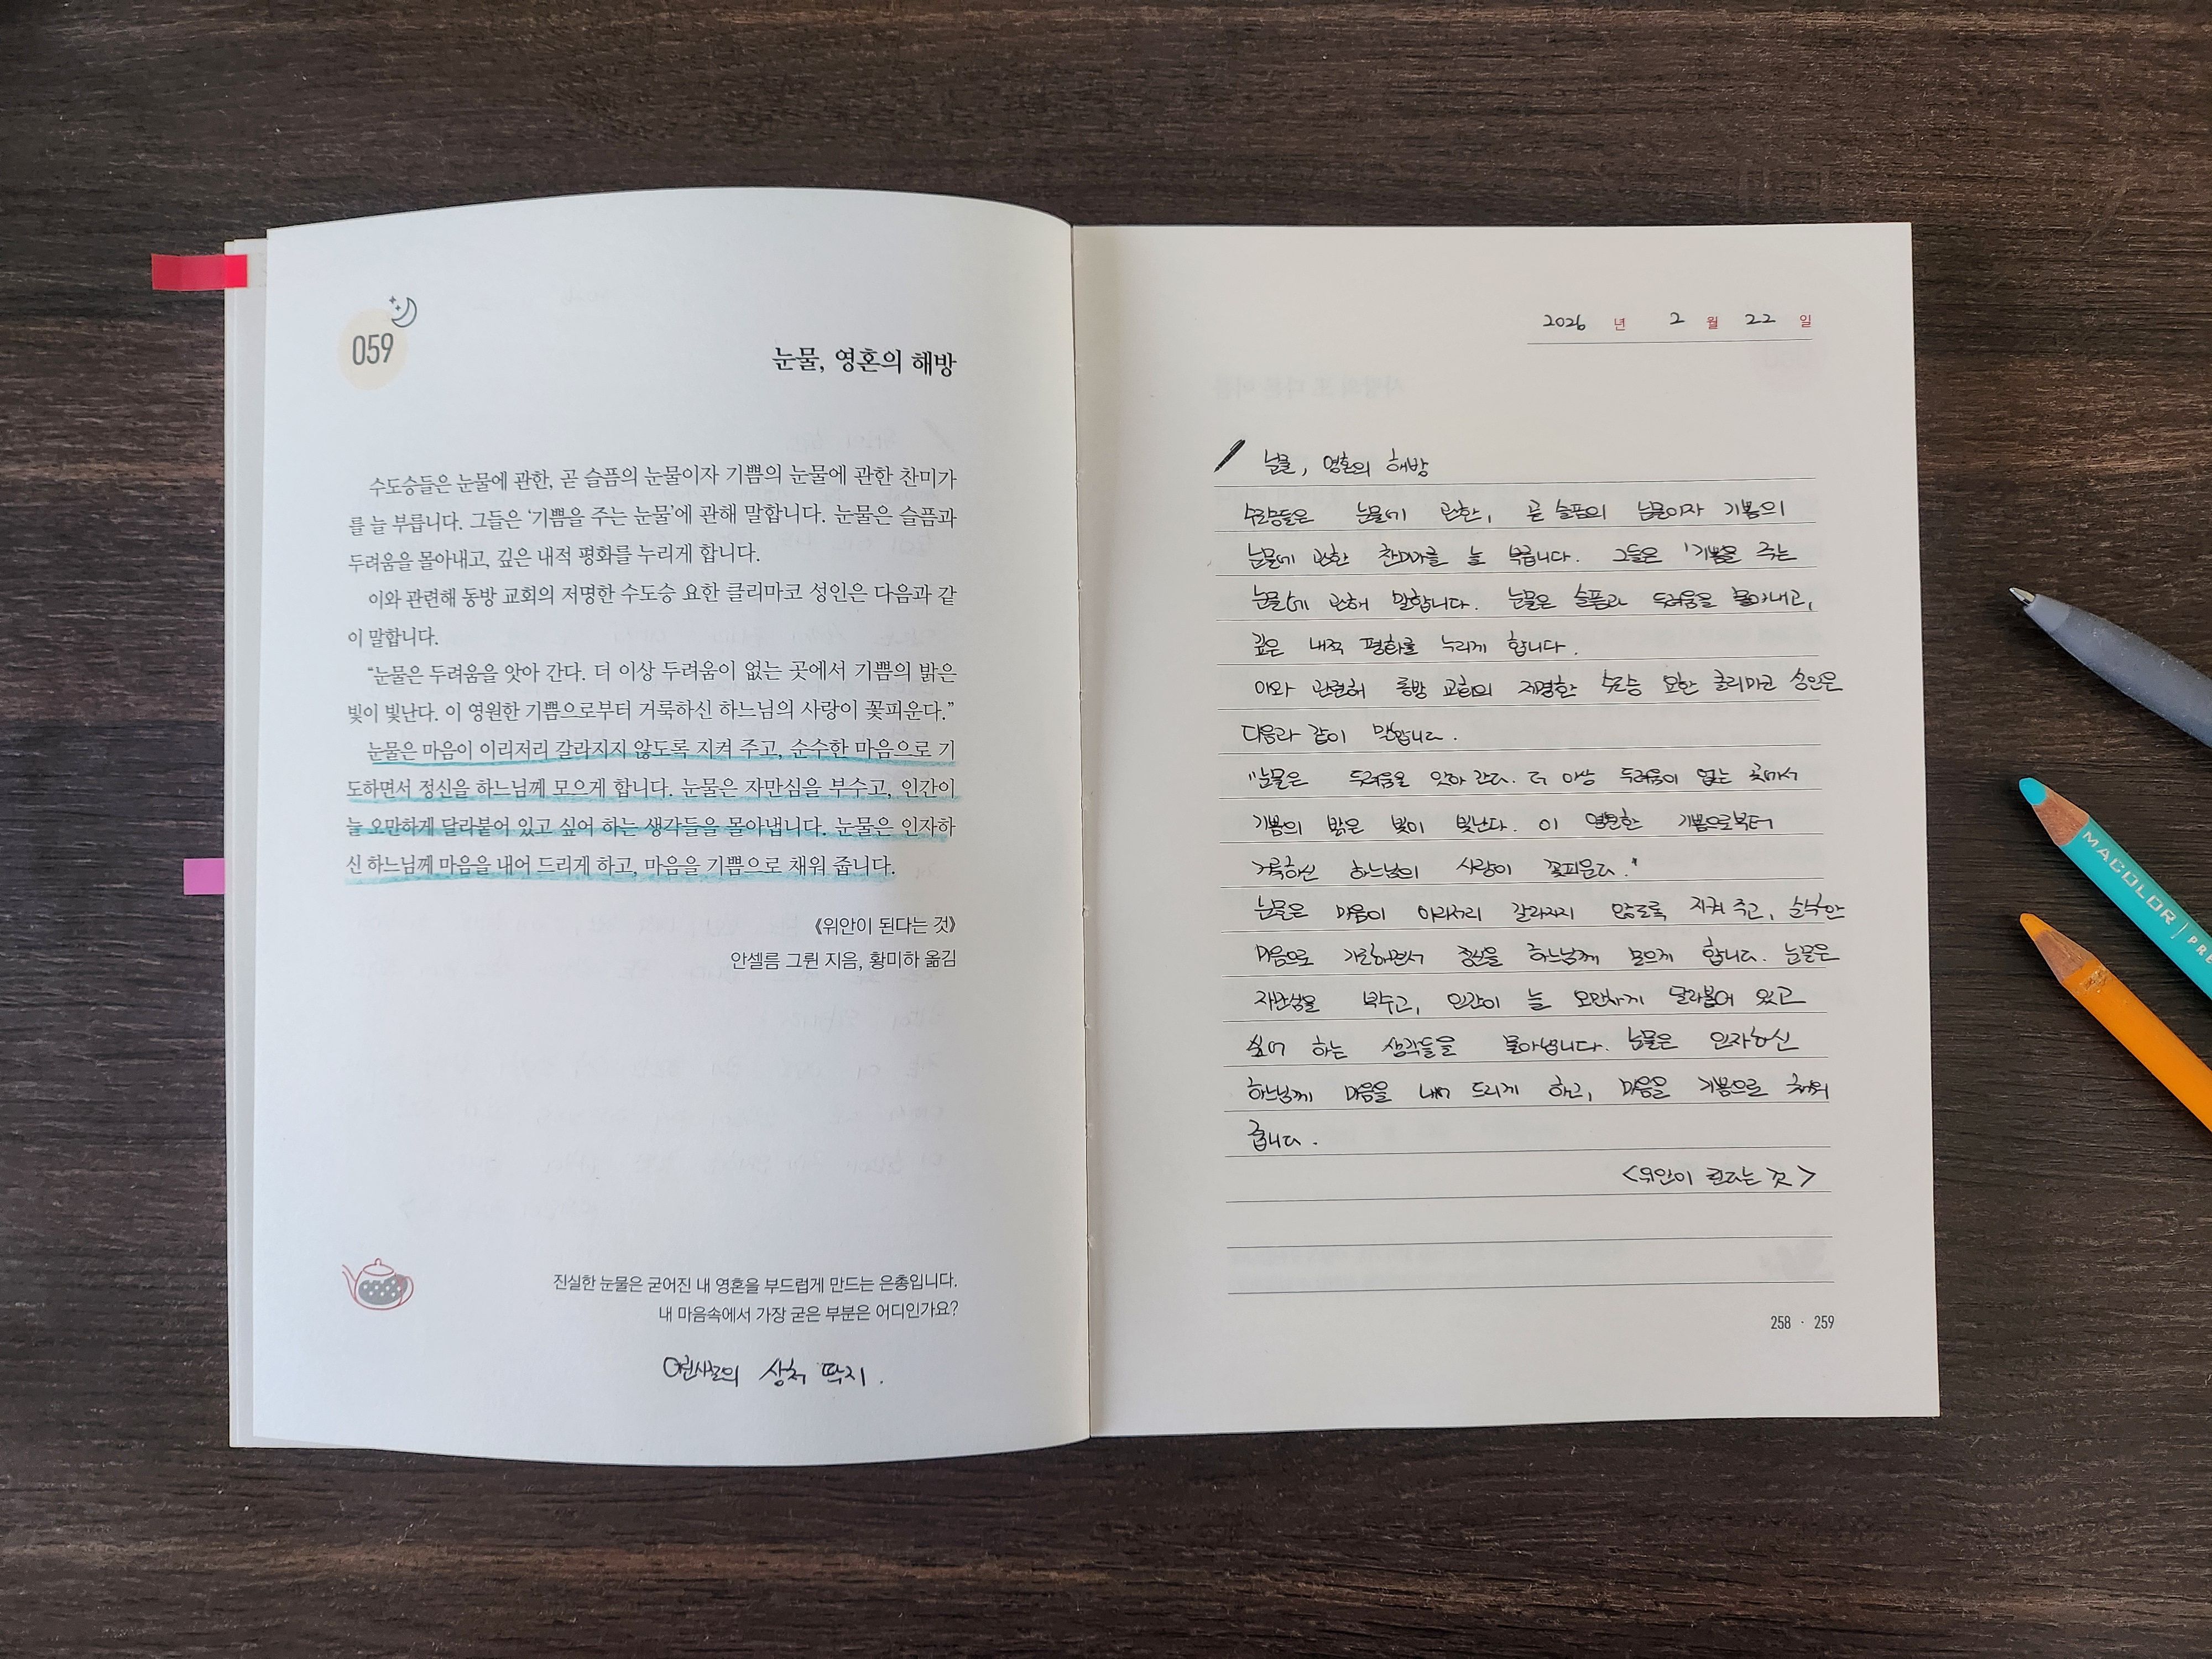 059
눈물, 영혼의 해방
수도승들은 눈물에 관한, 곧 슬픔의 눈물이자 기쁨의 눈물에 관한 찬미가
를 늘 부릅니다. 그들은 ‘기쁨을 주는 눈물’에 관해 말합니다. 눈물은 슬픔과
두려움을 몰아내고, 깊은 내적 평화를 누리게 합니다.
이와 관련해 동방 교회의 저명한 수도승 요한 클리마코 성인은 다음과 같
이 말합니다.
“눈물은 두려움을 앗아 간다. 더 이상 두려움이 없는 곳에서 기쁨의 밝은
빛이 빛난다. 이 영원한 기쁨으로부터 거룩하신 하느님의 사랑이 꽃피운다.”
눈물은 마음이 이리저리 갈라지지 않도록 지켜 주고, 순수한 마음으로 기
도하면서 정신을 하느님께 모으게 합니다. 눈물은 자만심을 부수고, 인간이
늘 오만하게 달라붙어 있고 싶어 하는 생각들을 몰아냅니다. 눈물은 인자하
신 하느님께 마음을 내어 드리게 하고, 마음을 기쁨으로 채워 줍니다.
《위안이 된다는 것》
안셀름 그륀 지음, 황미하 옮김
진실한 눈물은 굳어진 내 영혼을 부드럽게 만드는 은총입니다.
내 마음속에서 가장 굳은 부분은 어디인가요?
어린시절의 상처 딱지.
2026 년 2 월 22 일
눈물, 영혼의 해방
수도승들은 눈물에 관한, 곧 슬픔의 눈물이자 기쁨의
눈물에 관한 찬미가를 늘 부릅니다. 그들은 '기쁨을 주는
눈물'에 관해 말합니다. 눈물은 슬픔과 두려움을 몰아내고,
깊은 내적 평화를 누리게 합니다.
이와 관련해 동방 교회의 저명한 수도승 요한 클리마코 성인은
다음과 같이 말합니다.
"눈물은 두려움을 앗아 간다. 더 이상 두려움이 없는 곳에서
기쁨의 밝은 빛이 빛난다. 이 영원한 기쁨으로부터
거룩하신 하느님의 사랑이 꽃피운다."
눈물은 마음이 이리저리 갈라지지 않도록 지켜 주고, 순수한
마음으로 기도하면서 정신을 하느님께 모으게 합니다. 눈물은
자만심을 부수고, 인간이 늘 오만하게 달라붙어 있고
싶어 하는 생각들을 몰아냅니다. 눈물은 인자하신
하느님께 마음을 내어 드리게 하고, 마음을 기쁨으로 채워
줍니다.
<위안이 된다는 것>
258 · 259
MACOLOR | PRE